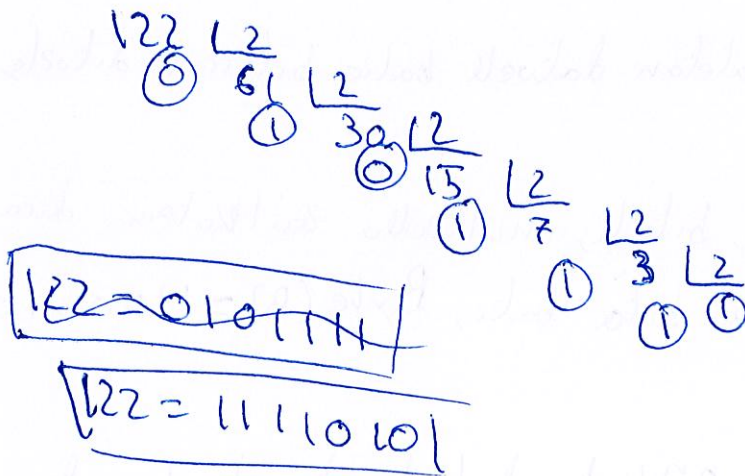 122 2
0 61 2
1 30 2
0 15 2
1 7 2
1 3 2
1 1
122 = 0101111
122 = 11110101